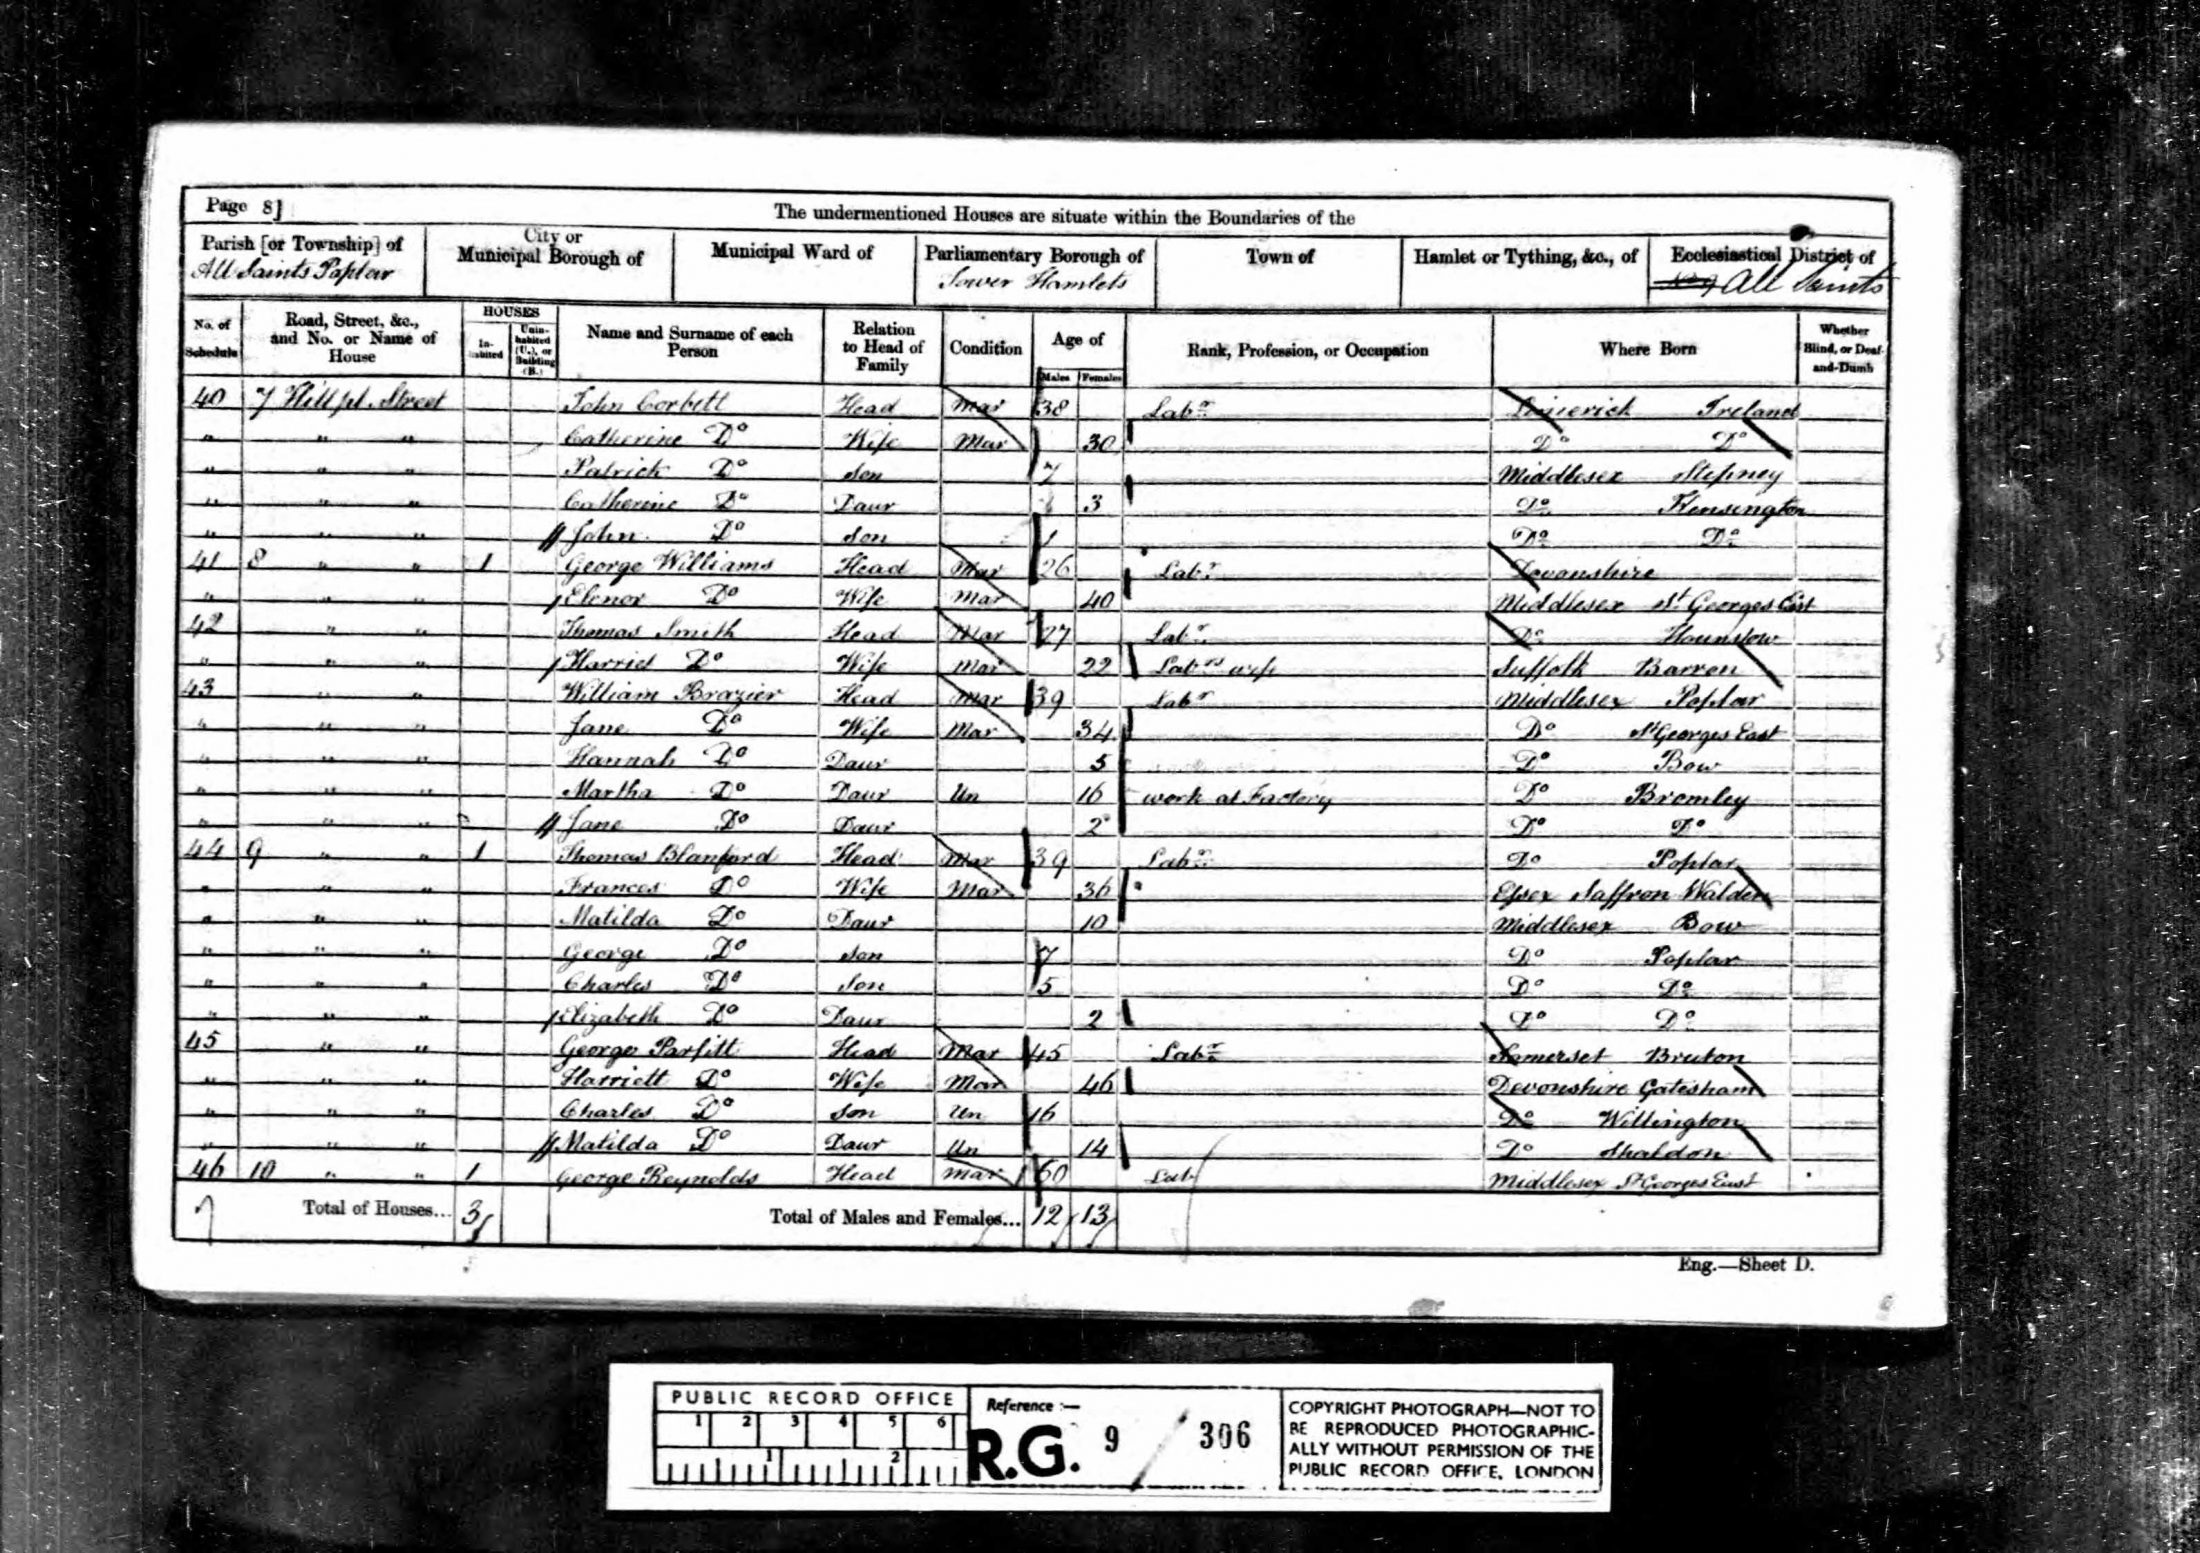 Page 8]
The undermentioned Houses are situate within the Boundaries of the
Parish [or Township] of
All Saints Poplar
City or
Municipal Borough of
Municipal Ward of
Parliamentary Borough of
Tower Hamlets
Town of
Hamlet or Tything, &c., of
Ecclesiastical District of
All Saints
No. of Schedule
Road, Street, &c., and No. or Name of House
HOUSES
In-habited
Unin-habited (U.), or Building (B.)
Name and Surname of each Person
Relation to Head of Family
Condition
Age of
Males Females
Rank, Profession, or Occupation
Where Born
Whether Blind, or Deaf-and-Dumb
40 7 Hill pl. Street John Corbett Head Mar 38 Labr Limerick Ireland
" " " Catherine Do Wife Mar 30 Do Do
" " " Patrick Do Son 7 Middlesex Stepney
" " " Catherine Do Daur 3 Do Kensington
" " " John Do Son 1 Do Do
41 8 " " 1 George Williams Head Mar 26 Labr Devonshire
" Elenor Do Wife Mar 40 Middlesex St Georges East
42 " " Thomas Smith Head Mar 27 Labr Do Hounslow
" " " Harriet Do Wife Mar 22 Labrs wife Suffolk Barren
43 " " William Brazier Head Mar 39 Labr Middlesex Poplar
" " " Jane Do Wife Mar 34 Do St Georges East
" " " Hannah Do Daur 5 Do Bow
" " " Martha Do Daur Un 16 work at Factory Do Bromley
" " " Jane Do Daur 2 Do Do
44 9 " " 1 Thomas Blanford Head Mar 39 Labr Do Poplar
" " " Frances Do Wife Mar 36 Essex Saffron Walden
" " " Matilda Do Daur 10 Middlesex Bow
" " " George Do Son 7 Do Poplar
" " " Charles Do Son 5 Do Do
" " " Elizabeth Do Daur 2 Do Do
45 " " George Parfitt Head Mar 45 Labr Somerset Bruton
" " " Harriett Do Wife Mar 46 Devonshire Gatesham
" " " Charles Do Son Un 16 Do Willington
" " " Matilda Do Daur Un 14 Do Shaldon
46 10 " " 1 George Reynolds Head Mar 60 Lab Middlesex St Georges East
7 Total of Houses... 3 Total of Males and Females... 12 13
Eng.—Sheet D.
PUBLIC RECORD OFFICE
1 2 3 4 5 6
1 2
Reference :—
R.G. 9 / 306
COPYRIGHT PHOTOGRAPH—NOT TO
BE REPRODUCED PHOTOGRAPHIC-
ALLY WITHOUT PERMISSION OF THE
PUBLIC RECORD OFFICE, LONDON